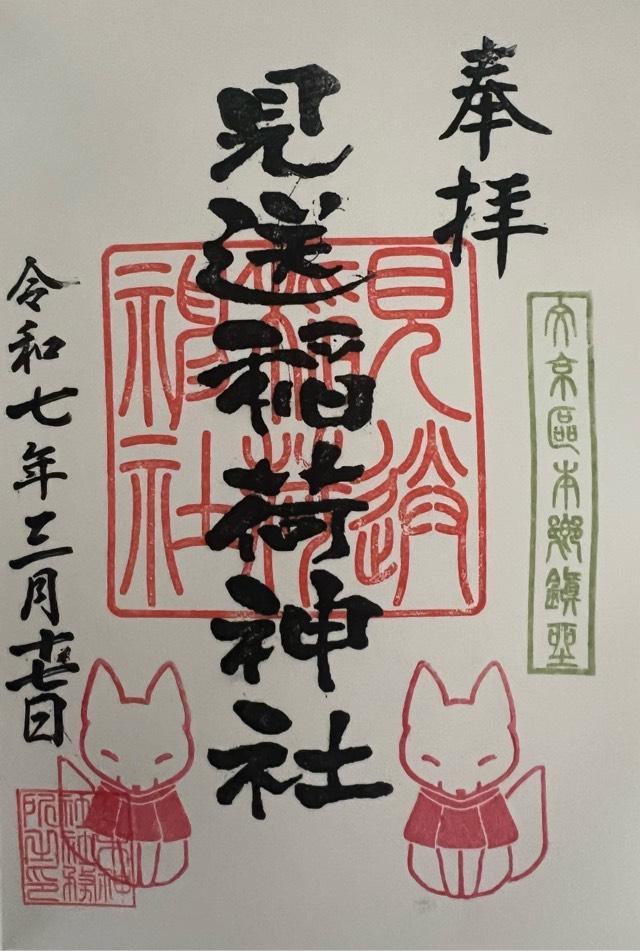 奉拝
文京區本郷鎮座
見送稲荷神社
見送稲荷神社
令和七年三月十七日